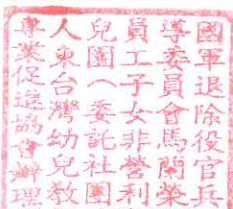 國軍退除役官兵
導委員會馬蘭榮
員工子女非營利
兒園︵委託社團
人東台灣幼兒教
專業促進協會辦理